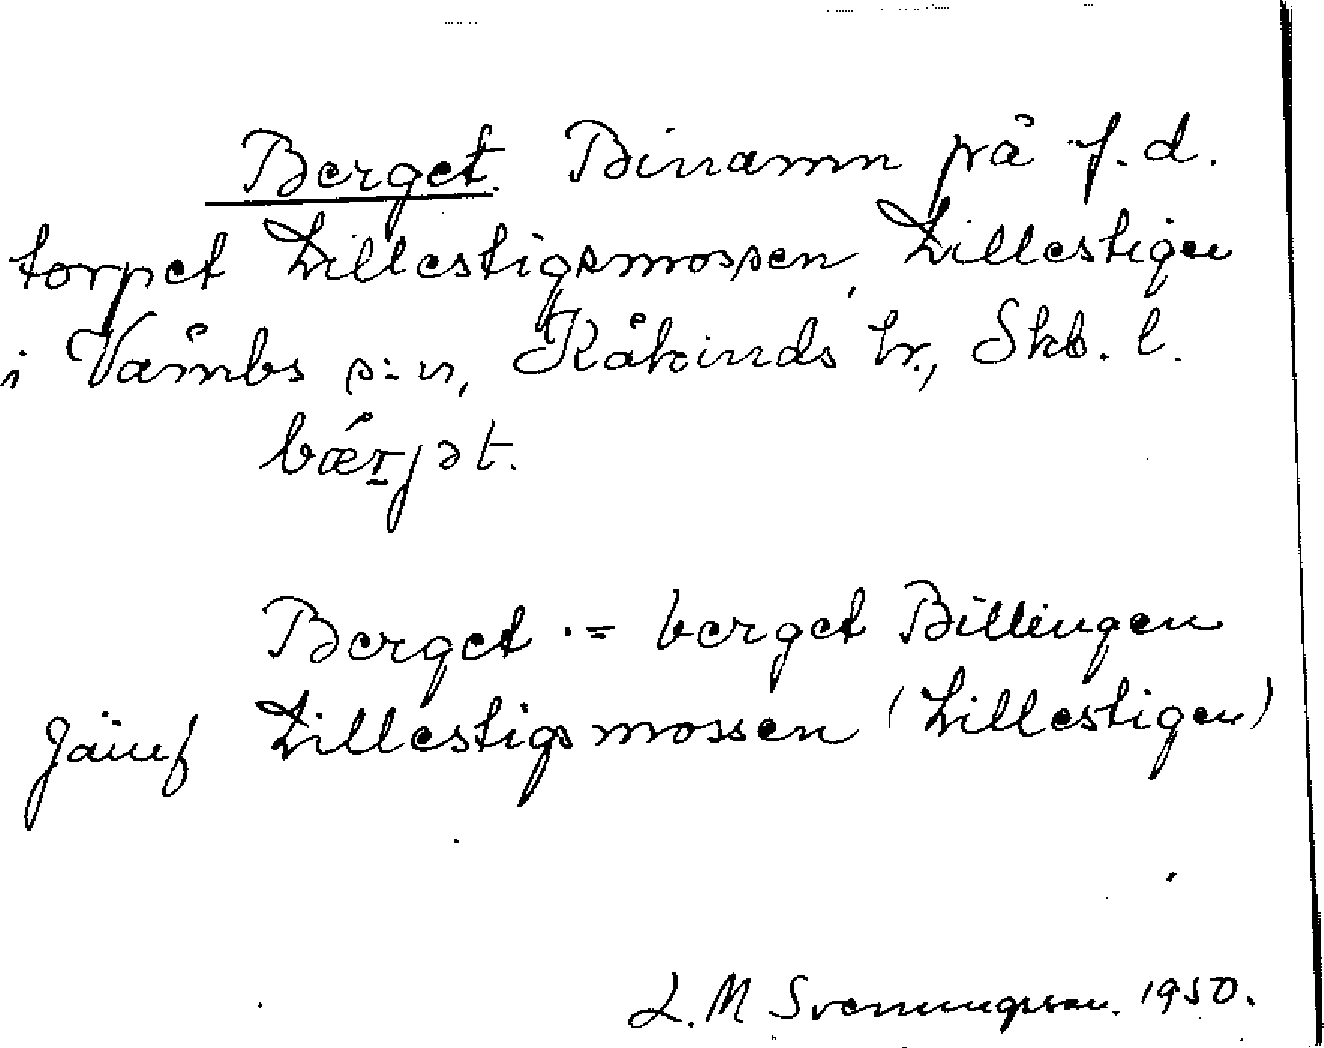 Berget. Binamn på f.d.
torpet Lillestigsmossen, Lillestigen
i Våmbs s:n, Kåkinds hr., Skb. l.
bǽr̲jət.
Berget = berget Billingen
Jämf Lillestigsmossen (Lillestigen)
L. M Svenungsson. 1950.